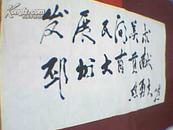 发展民间美术
邳州大有贡献